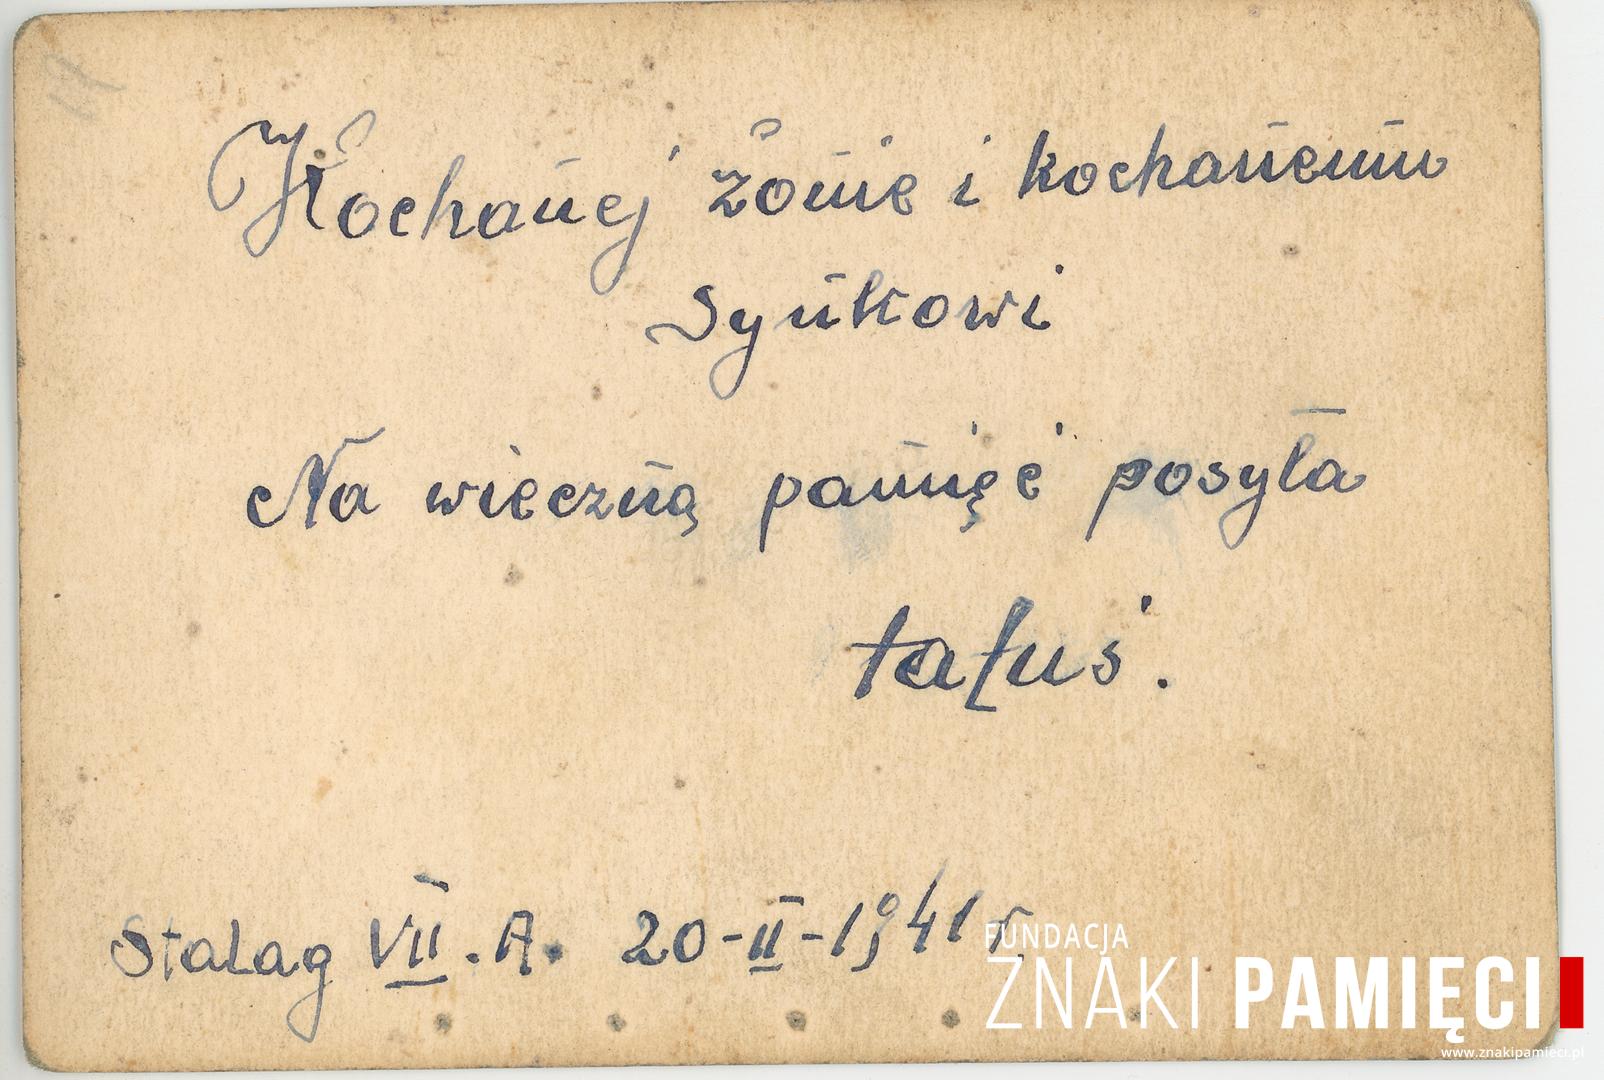 Kochanej żonie i kochanemu
Synkowi
Na wieczną pamięć posyła
tatuś.
Stalag VII. A. 20-II-1941 r.
FUNDACJA
ZNAKI PAMIĘCI
www.znakipamieci.pl